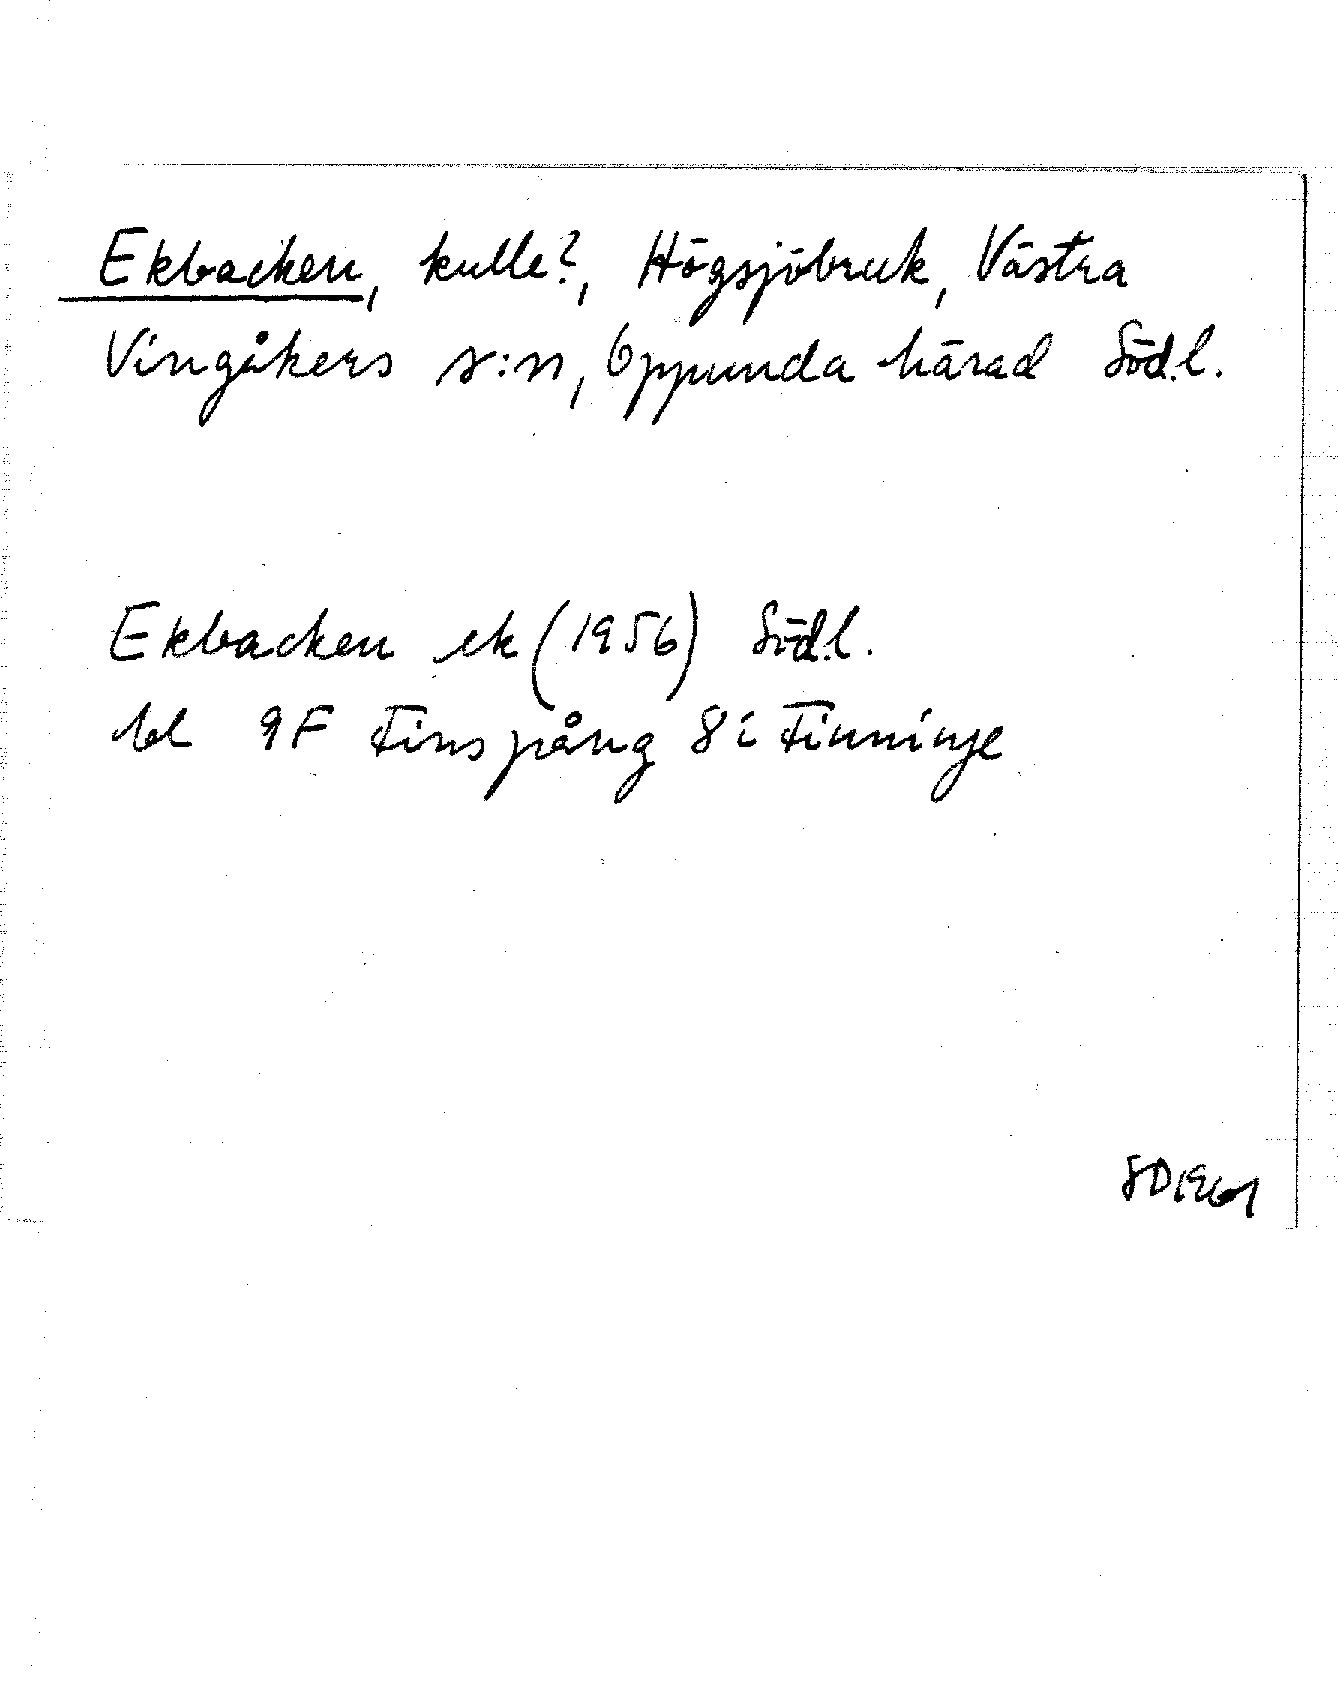 Ekbacken, kulle?, Högsjöbruk, Västra
Vingåkers s:n, Oppunda härad Södl.
Ekbacken ek (1956) Södl.
bl 9F Finspång 8i Finninge
SD 1961